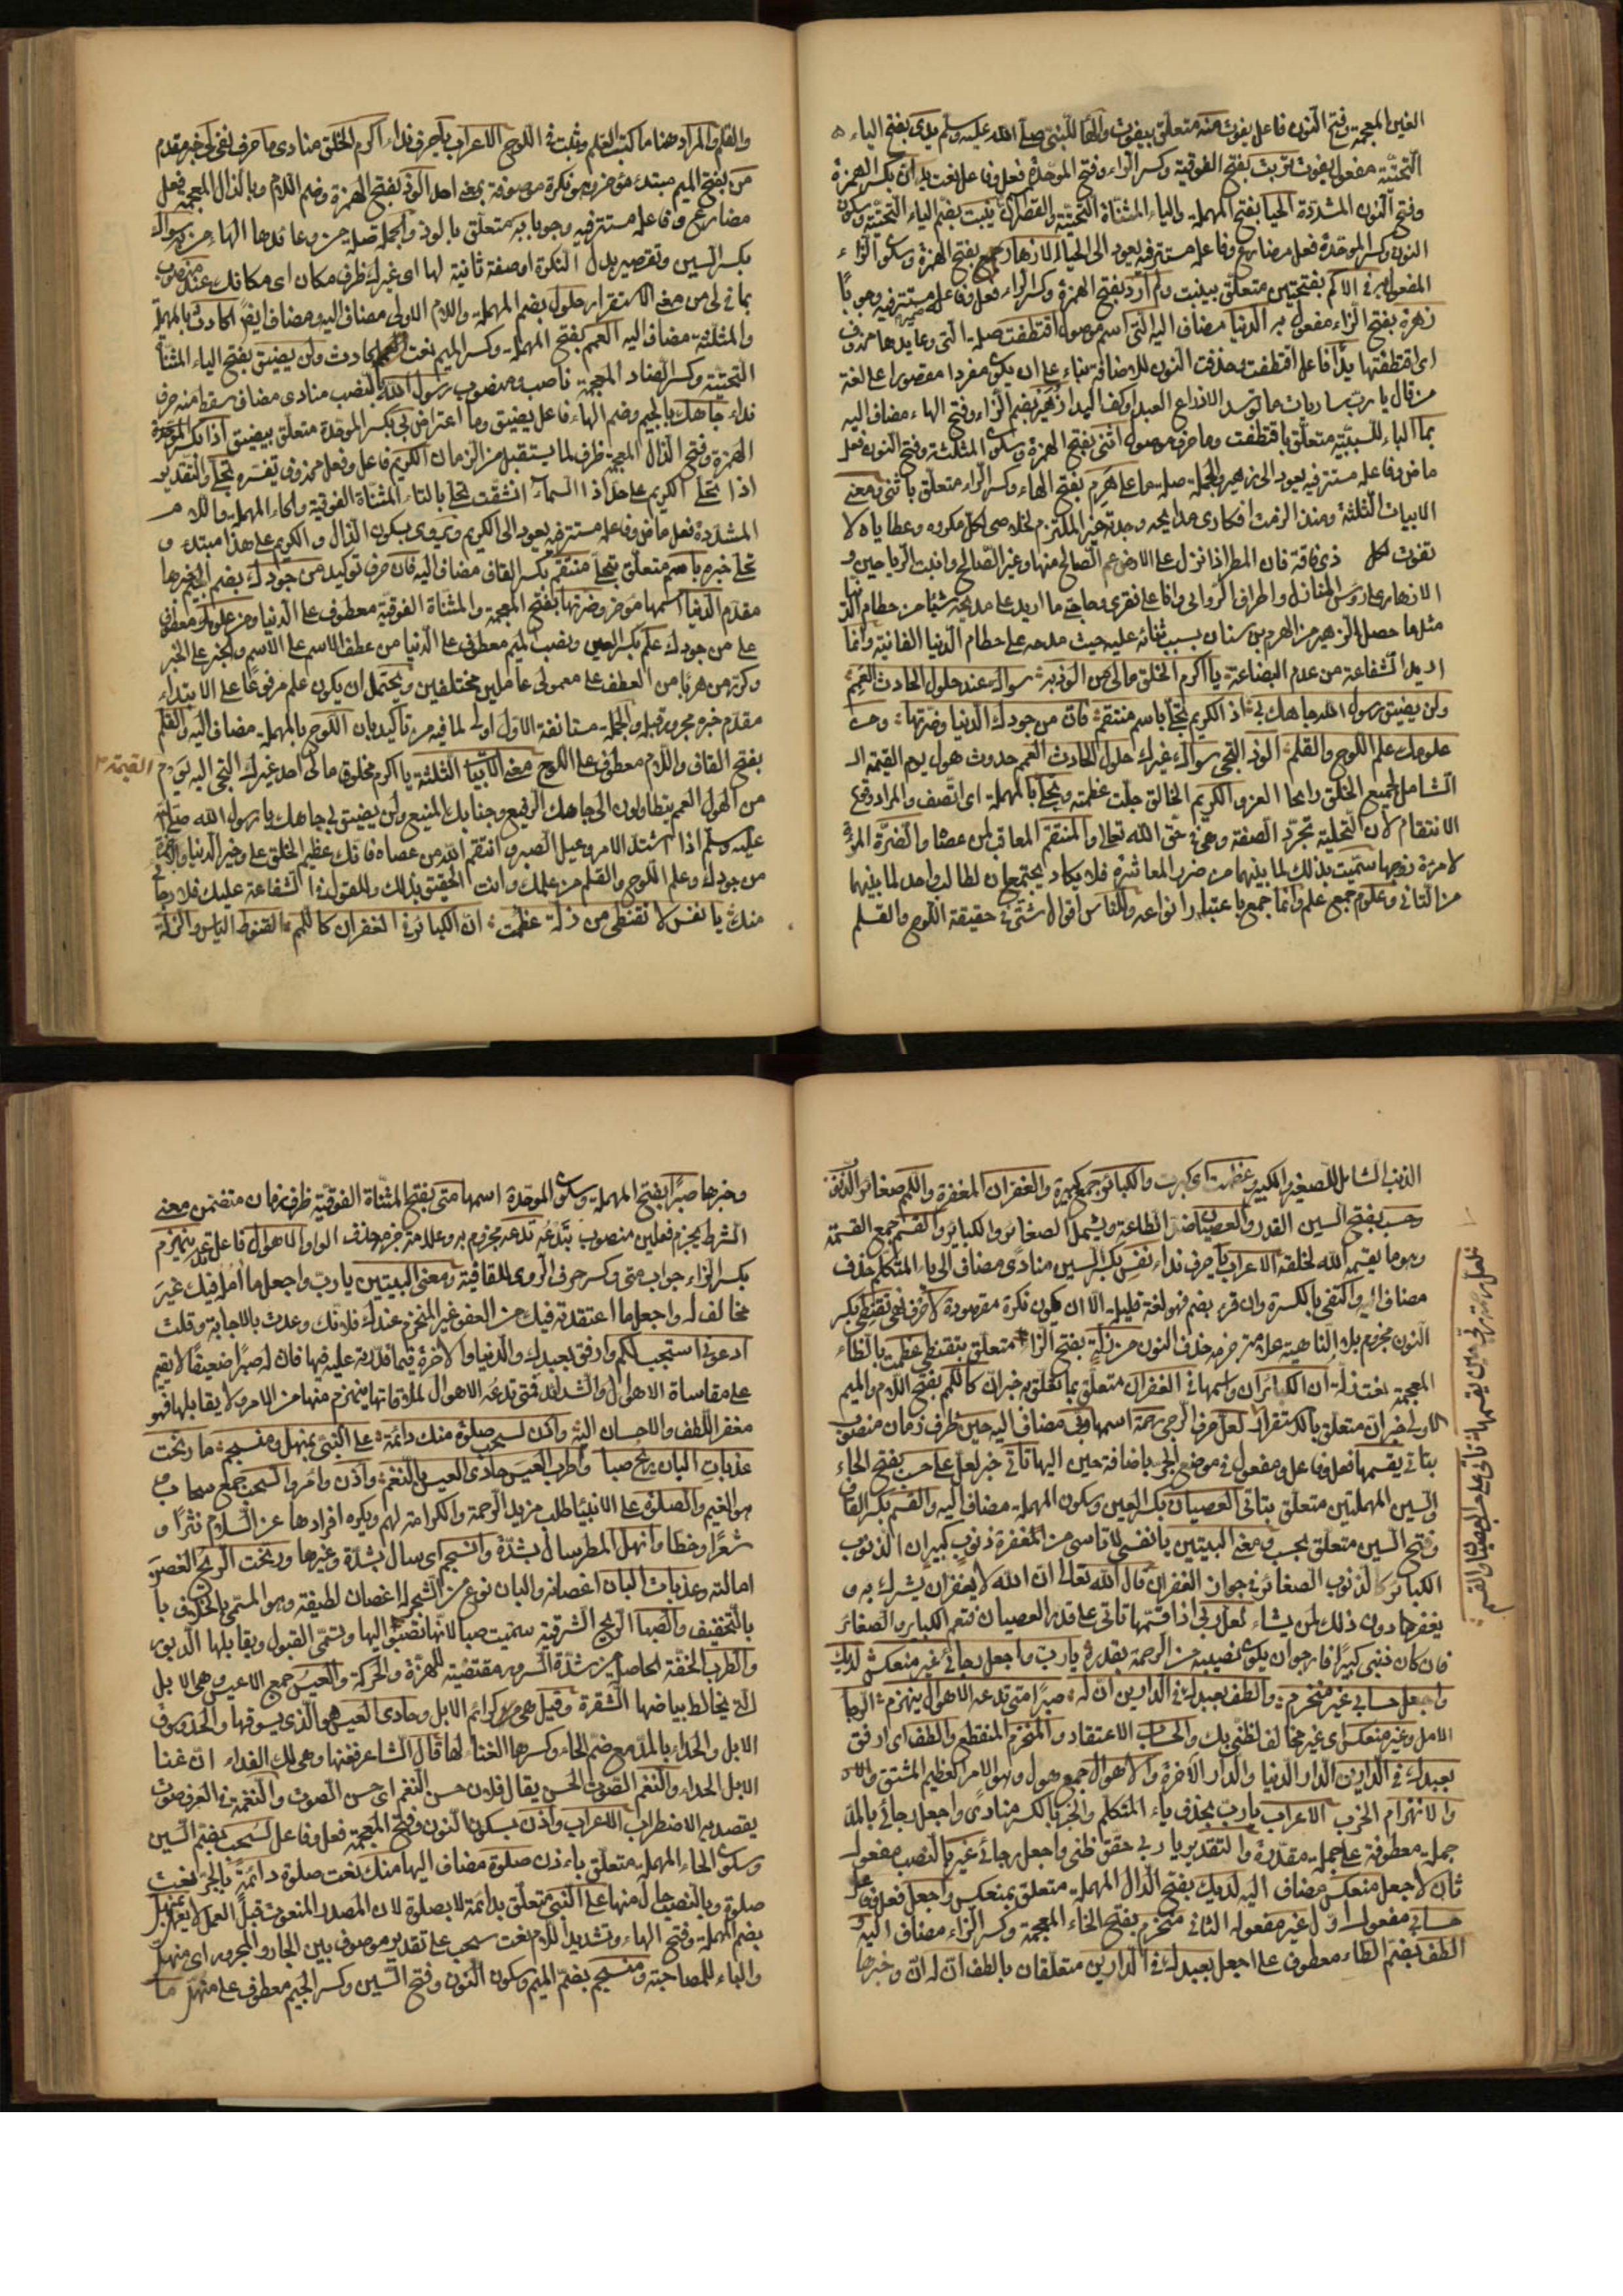 الغين المعجمة وفتح النون فاعل يفوت منه متعلق بيفوت والهاء للنبي صلى الله عليه وسلم يدى بفتح الياء
التحتية مفعول يفوت تربت بفتح الفوقية وكسر الراء وفتح الموحدة فعل وفاعل نعت يد ان بكسر الهمزة
وفتح النون المشددة الحيا بفتح المهملة والياء المثناة التحتية والقصر ينبت بضم الياء التحتية وسكون
النون وكسر الموحدة فعل مضارع وفاعله مستتر فيه يعود الى الحيا الازهار جمع بفتح الهمزة وسكون الزاء
المفعول به في الاكم بفتحتين متعلق بينبت ولم ارد بفتح الهمزة وكسر الراء فعل وفاعله مستتر فيه وجوبا
زهرة بفتح الزاء مفعول به الدنيا مضاف اليه التي اسم موصول اقتطفت صلة التي وعايدها محذوف
اى اقتطفتها يدا فاعل اقتطفت وحذفت النون للاضافة بناء على ان يكون مفردا مقصورا على لغة
من قال يا رب سار بات ما توسد الا ذراع العيد او كف اليدا زهير بضم الزاء وفتح الهاء مضاف اليه
بما الباء للسببية متعلق باقتطفت وما حرف موصول اثنى بفتح الهمزة وسكون المثلثة وفتح النون فعل
ماض وفاعله مستتر فيه يعود الى زهير والجملة صلة ما على هرم بفتح الهاء وكسر الراء متعلق باثنى ومعنى
الابيات الثلثة ومنذ الزمت افكارى مدايحه وجدته خير الملتزم لخلاصى لكل مكروه وعطاياه لا
تفوت لكل ذى فاقة فان المطر اذا نزل على الارض عم الصالح منها وغير الصالح وانبت الرياحين و
الازهار على رؤس المنازل واطراف الروابى وانا على فقرى وحاجتى ما اريد على مديحه شيئا من حطام الدنيا
مثل ما حصل لزهير من الهرم بن سنان بسبب ثنائه عليه حيث مدحه على حطام الدنيا الفانية وانما
اريد الشفاعة من عدم البضاعة يا اكرم الخلق مالى من الوذ به سواك عند حلول الحادث العمم
ولن يضيق رسول الله جاهك بى اذ الكريم تحلى باسم منتقم فان من جودك الدنيا وضرتها ومن
علومك علم اللوح والقلم الوذ التجى سواك غيرك حلول الحادث العمم حدوث هول يوم القيمة الـ
الشامل لجميع الخلق والجاه العز والكريم الخالق جلت عظمته وتحلى بالمهملة اى اتصف والمراد وقع
الانتقام لان التحلية تجرد الصفة وهى في حق الله تعالى والمنتقم المعاقب لمن عصاه والضرة المرأة
لامرأة زوجها سميت بذلك لما بينهما من ضرر المعاشرة فلا يكاد يجتمعان لطالب واحد لما بينهما
من التنافى وعلوم جمع علم وانما جمع باعتبار انواعه وللناس اقوال شتى في حقيقة اللوح والقلم
والقلم والمراد هنا ما كتب القلم وثبت في اللوح الاعراب يا حرف نداء اكرم الخلق منادى ما حرف نفى لى خبر مقدم
من بفتح الميم مبتدء مؤخر وهو نكرة موصوفة بمعنى احد الوذ بفتح الهمزة وضم اللام وبالذال المعجمة فعل
مضارع وفاعله مستتر فيه وجوبا به متعلق بالوذ والجملة صلة من وعائدها الهاء من به سواك
بكسر السين وتقصير بدل النكرة او صفة ثانية لها اى غيرك ظرف مكان اى مكانك عند منصوب
بما في لى من معنى الاستقرار حلول بضم المهملة واللام الاولى مضاف اليه ومضاف ايضا الحادث بالمهملة
والمثلثة مضاف اليه العمم بفتح المهملة وكسر الميم نعت الحادث ولن يضيق بفتح الياء المثناة
التحتية وكسر الضاد المعجمة ناصب ومنصوب رسول الله بالنصب منادى مضاف سقط منه حرف
نداء جاهك بالجيم وضم الهاء فاعل يضيق وما اعتراض بى بكسر الموحدة متعلق بيضيق اذا بكسر
الهمزة وفتح الذال المعجمة ظرف لما يستقبل من الزمان الكريم فاعل وفعل محذوف تفسره تحلى والتقدير
اذا تحلى الكريم على حد اذا السماء انشقت تحلى بالتاء المثناة الفوقية والحاء المهملة واللام
المشددة فعل ماض وفاعله مستتر فيه يعود الى الكريم ويروى بسكون الذال والكريم على هذا مبتدء و
تحلى خبره باسم متعلق بتحلى منتقم بكسر القاف مضاف اليه فان حرف توكيد من جودك بضم الجيم خبرها
مقدم الدنيا اسمها مؤخر وضرتها بفتح المعجمة والمثناة الفوقية معطوف على الدنيا ومن علومك معطوف
على من جودك علم بكسر العين ونصب الميم معطوف على الدنيا من عطف الاسم على الاسم والخبر على الخبر
وكرة من هربا من العطف على معمولى عاملين مختلفين ويحتمل ان يكون علم مرفوعا على الابتداء
مقدم خبره مجرور قبله والجملة مستانفة الاول اولى لما فيه من تأكيد بان اللوح بالمهملة مضاف اليه والقلم
بفتح القاف واللام معطوف على اللوح معنى الابيات الثلثة يا اكرم مخلوق مالى احد غيرك التجى اليه يوم
القيمة
من الهول العمم يتطاولون الى جاهك الرفيع وجنابك المنيع ولن يضيق بى جاهك يا رسول الله صلى الله
عليه وسلم اذا اشتد الامر وعيل الصبر وانتقم الله من عصاه فانك عظيم الخلق على وخير الدنيا والاخرة
من جودك وعلم اللوح والقلم من علمك وانت الحقيق بذلك والمقول في الشفاعة عليك فلا رجا
منك يا نفس لا تقنطى من زلة عظمت ان الكبائر في الغفران كاللمم القنوط الياس والزلة
الذنب الشامل للصغير والكبير عظمت اى كبرت والكبائر جمع كبيرة والغفران المغفرة واللمم صغائر الذنوب
وحسب بفتح السين القدر والعصيان ضد الطاعة ويشمل الصغائر والكبائر والقسم جمع القسمة
وهو ما يقسمه الله لخلقه الاعراب يا حرف نداء نفس بكسر السين منادى مضاف الى ياء المتكلم حذف
مضاف اليه واكتفى بالكسرة وان قرء بضم فهو لغة قليلة الا ان يكون نكرة مقصودة لا حرف نهى تقنطى بكسر
النون مجزوم بلا الناهية علامة جزمه حذف النون من زلة بفتح الزاء متعلق بتقنطى عظمت بالظاء
المعجمة نعت زلة ان الكبائر ان واسمها في الغفران متعلق بما تعلق به خبر ان كاللمم بفتح اللام والميم
الاولى خبر ان متعلق بالاستقرار لعل حرف ترجى رحمة اسمها ربى مضاف اليه حين ظرف زمان منصوب
بتاتى يقسمها فعل وفاعل ومفعول في موضع الجر باضافة حين اليها تاتى خبر لعل على حسب بفتح الحاء
والسين المهملتين متعلق بتاتى العصيان بكسر العين وسكون المهملة مضاف اليه والقسم بكسر القاف
وفتح السين متعلق بحسب ومعنى البيتين يا نفسى لا تياسى من المغفرة ذنوب كبير ان الذنوب
الكبائر كالذنوب الصغائر في جواز الغفران قال الله تعالى ان الله لا يغفر ان يشرك به و
يغفر ما دون ذلك لمن يشاء لعل ربى اذا قسمها تاتى على قدر العصيان فتعم الكبائر والصغائر
فان كان ذنبى كبيرا فارجو ان يكون نصيبه من الرحمة بقدره يا رب واجعل رجائى غير منعكس لديك
واجعل حسابى غير منخرم والطف بعبدك في الدارين ان له صبرا متى تدعه الاهوال ينهزم الرجا
الامل وغير منعكس اى غير مخالف لظنى بك والحساب الاعتقاد والمنخرم المنقطع والطف اى ارفق
بعبدك في الدارين الدار الدنيا والدار الاخرة والاهوال جمع هول وهو الامر العظيم المشتق
والانهزام الخرب الاعراب يا رب بحذف ياء المتكلم والجر بالكسر منادى واجعل رجائى بالمد
جملة معطوفة على جملة مقدرة والتقدير يا ربى حقق ظنى واجعل رجائى غير بالنصب مفعول
ثان لاجعل منعكس مضاف اليه لديك بفتح الدال المهملة متعلق بمنعكس واجعل فعل وفاعل
حسابى مفعول اول غير مفعوله الثانى منخرم بفتح الخاء المعجمة وكسر الراء مضاف اليه و
الطف بضم الطاء معطوف على اجعل بعبدك في الدارين متعلقان بالطف ان له ان وخبرها
لعل رحمة ربى حين يقسمها تاتى على حسب العصيان والقسم
وخبرها صبرا بفتح المهملة وسكون الموحدة اسمها متى بفتح المثناة الفوقية ظرف زمان متضمن معنى
الشرط يجزم فعلين منصوب بتدعه تدعه مجزوم به وعلامة جزمه حذف الواو الاهوال فاعل تدعه ينهزم
بكسر الزاء جواب متى وكسر حرف الروى للقافية ومعنى البيتين يا رب واجعل ما امل فيك غير
مخالف له واجعل ما اعتقدته فيك من العفو غير المنخرم عندك فلانك وعدت بالاجابة وقلت
ادعونى استجب لكم وارفق بعبدك والدنيا والاخرة فيما قدرته عليه فيها فان له صبرا ضعيفا لا يقيم
على مقاساة الاهوال والشدائد فمتى تدعه الاهوال لملاقاتها ينهزم منها من الامر ولا يقابلها فهو
مفقر اللطف والاحسان اليه وأذن لسحب صلوة منك دائمة على النبى بمنهل ومنسجم ما رنحت
عذبات البان ريح صبا واطرب العيس حادى العيس بالنغم وأذن وامر والسحب جمع سحاب
هو الغيم والصلوة على الانبياء طلب مزيد الرحمة والكرامة لهم ويكره افرادها عن السلام نثرا و
شعرا وخطا وانهل المطر سال بشدة وانسجم اى سال بشدة وغيرها ورنحت الريح الغصن
امالته وعذبات البان اغصانه والبان نوع من الشجر له اغصان لطيفة وهو المسمى بالخلاف با
بالتخفيف والصبا الريح الشرقية سميت صبا لانها تصبوا اليها وتسمى القبول ويقابلها الدبور
والطرب الخفة الحاصلة من شدة السرور مقتضية للهزة والحركة والعيس جمع الاعيس وهى الابل
التى يخالط بياضها الشقرة وقيل هى كرائم الابل وحادى العيس هو الذى يسوقها والحدو سوق
الابل والحداء بالمد مع ضم الحاء وكسرها الغناء لها قال الشاعر فغنها وهى لك الفداء ان غنا
الابل الحداء والنغم الصوت الحسن يقال فلان حسن النغم اى حسن الصوت والنغمة في العرف صوت
يقصد به الاضطراب الاعراب وأذن بسكون النون وفتح المعجمة فعل وفاعل لسحب بضم السين
وسكون الحاء المهملة متعلق باءذن صلوة مضاف اليها منك نعت صلوة دائمة بالجر نعت
صلوة وبالنصب حال منها على النبى متعلق بدائمة لا بصلوة لان المصدر المنعوت قبل العمل لا يعمل بمنهل
بضم المهملة وفتح الهاء وتشديد اللام نعت سحب على تقدير موصوف بين الجار والمجرور اى منهل
والباء للمصاحبة ومنسجم بضم الميم وسكون النون وفتح السين وكسر الجيم معطوف على منهل ما